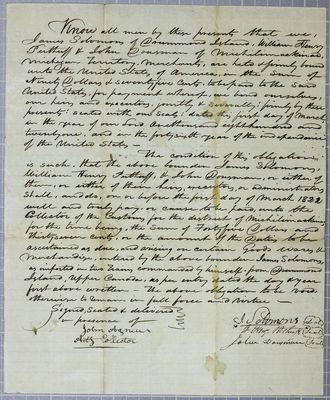 Know all men by these presents that we,
James Solomons of Drummond Island, William Henry
Puthuff, & John Dousman of Michilimackinac,
Michigan Territory, Merchants, are held & firmly bound
unto the United States of America, in the Sum of
Ninety Dollars & seventy five Cents, to be paid to the said
United States; for payment whereof, we bind ourselves,
our heirs and executors, jointly & severally, firmly by these
presents; sealed with our Seals; dated the first day of March
in the year of our Lord Eighteen hundred and
twenty one, and in the forty fifth year of the independence
of the United States —
The condition of this obligation
is such, that if the above bound James Solomons,
William Henry Puthuff, & John Dousman or either of
them, or either of their heirs, executors, or administrators
shall, and do, on or before the first day of March 1822
well and truly pay or cause to be paid unto the
Collector of the Customs for the district of Michilimackinac
for the time being, the Sum of Forty five Dollars and
Thirty seven Cents, or the amount of the Duties to be
ascertained as due, and arising on certain Goods, wares &
Merchandize, entered by the above bounden James Solomons,
as imported in two Trains commanded by himself from Drummond
Island, Upper Canada, as per entry dated the day & year
first above written — the above obligation to be void:
otherwise to remain in full force and virtue —
Signed, Sealed & delivered
in presence of
John Agnew
Collector
J Solomons
John Dousman